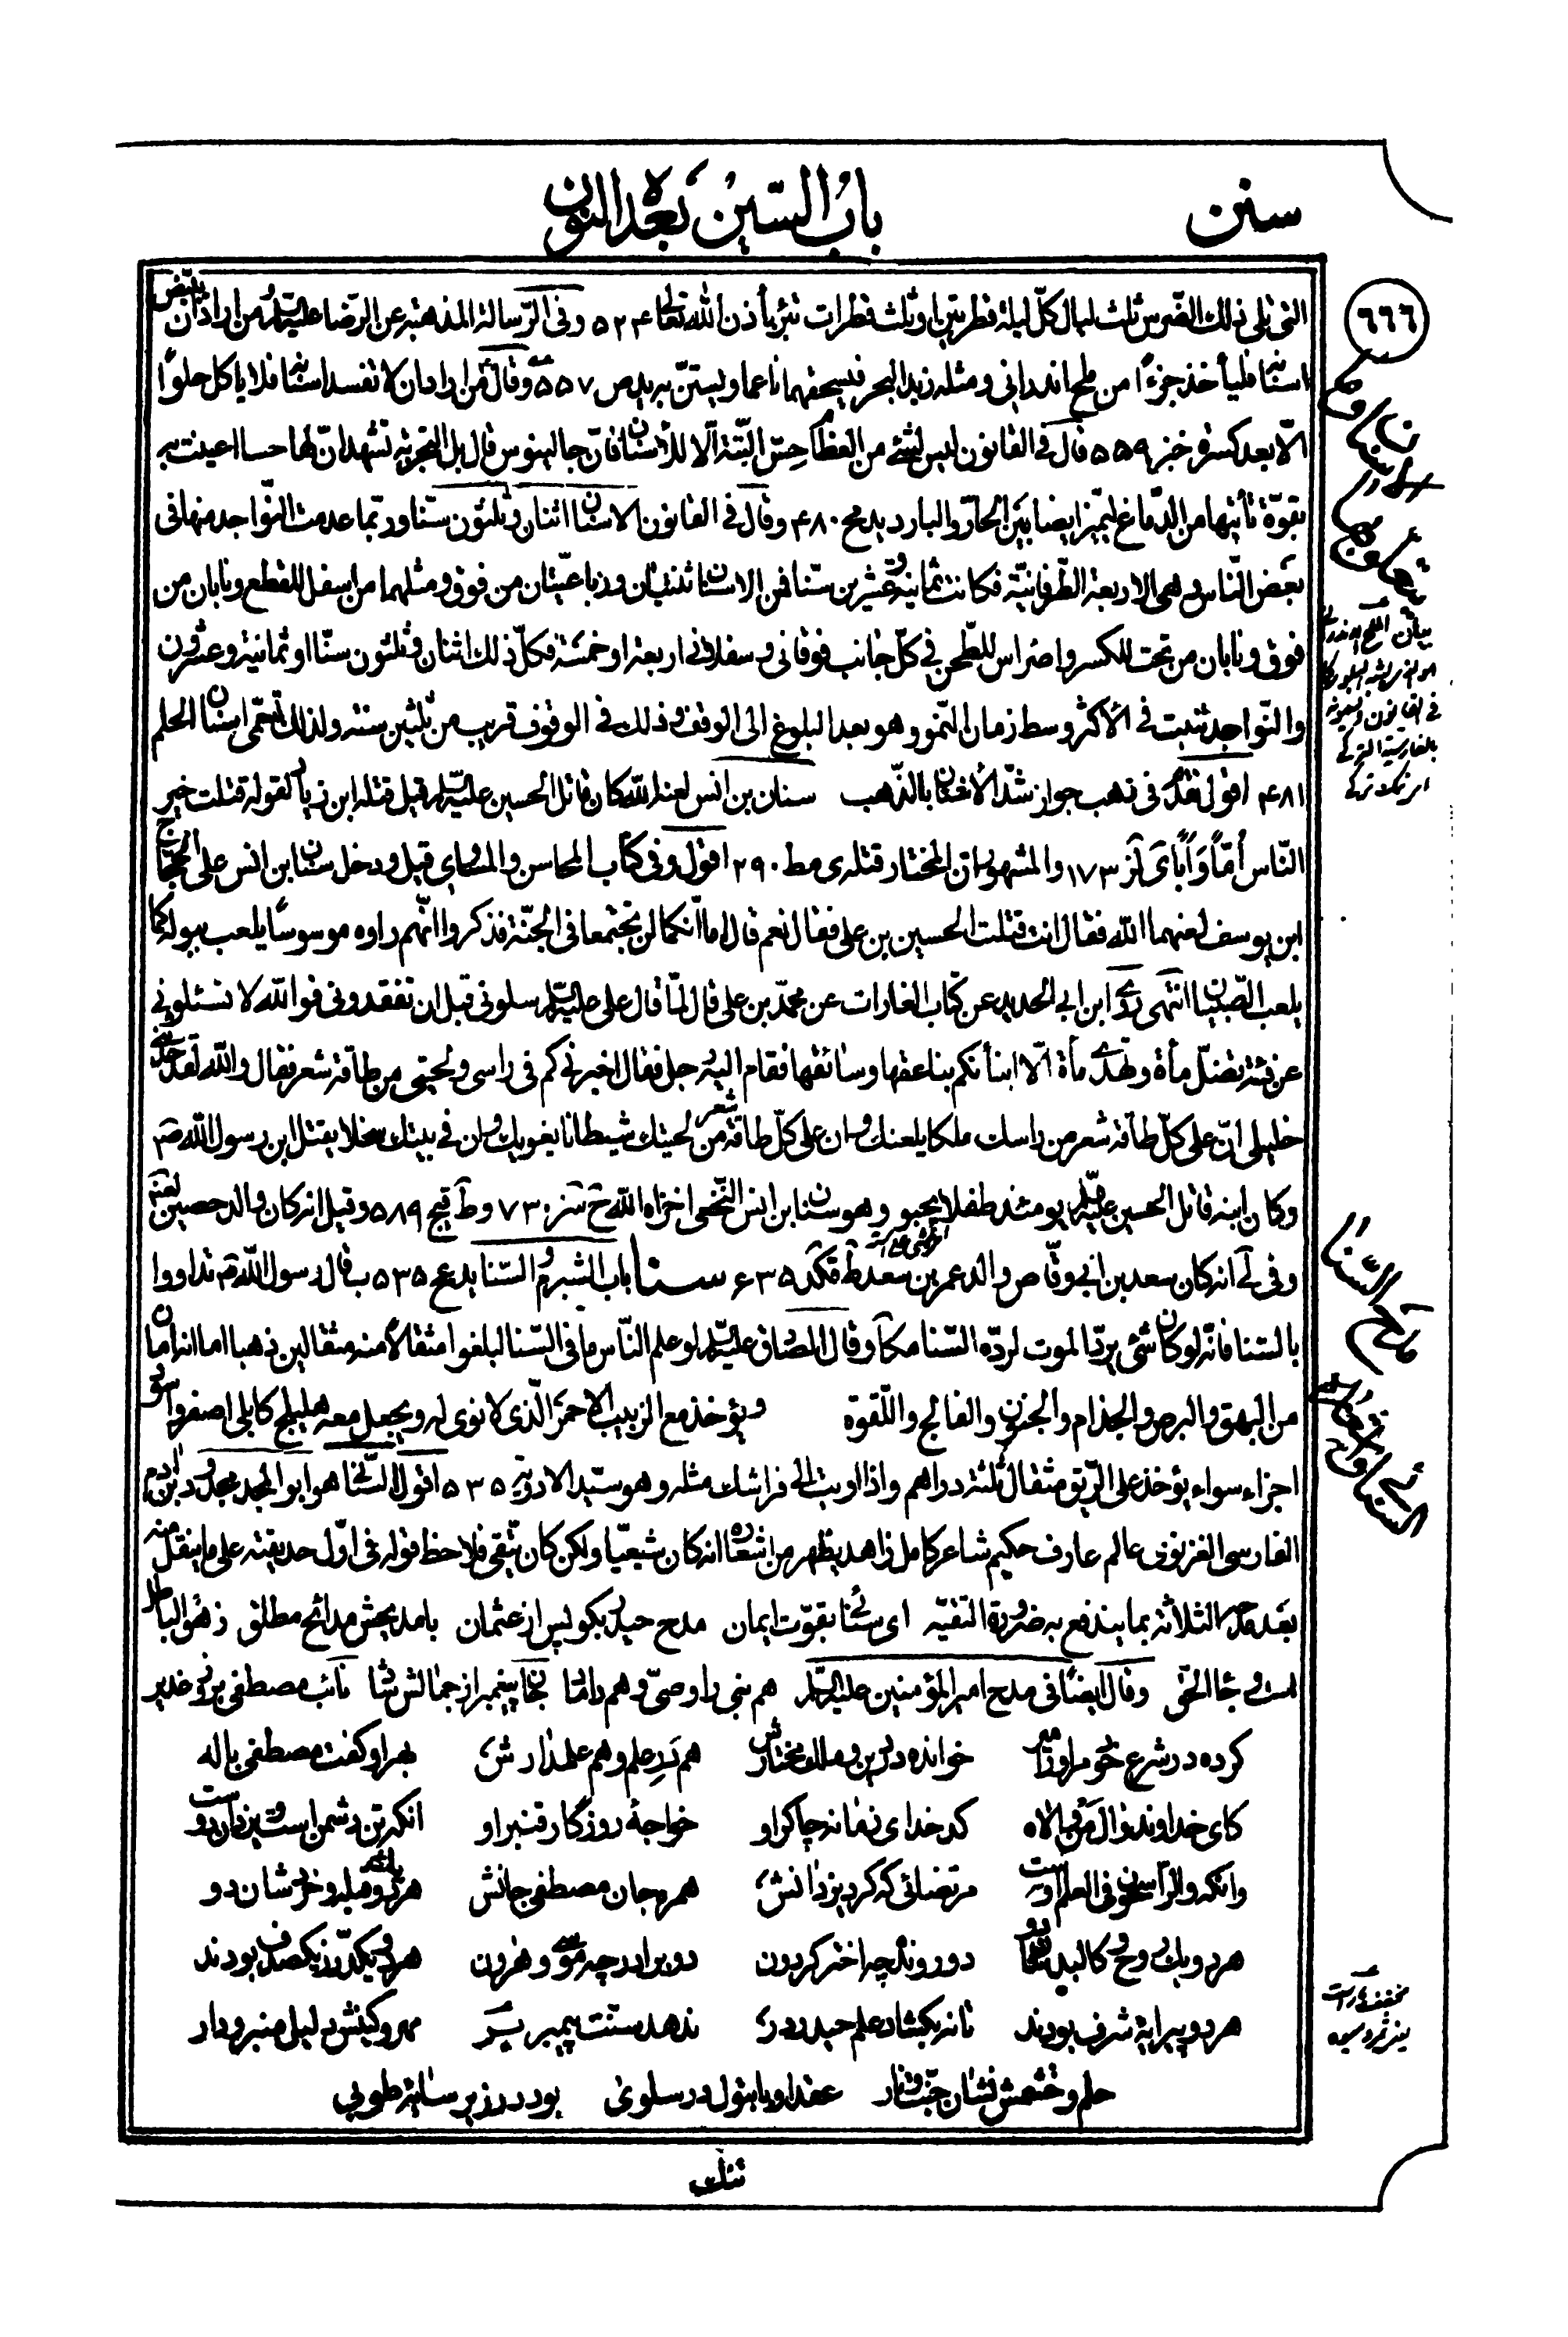 سنن
باب السّين بعد النون
٦٦٦
التى تلى ذلك الضّرس ثلث ليال كلّ ليلة قطرتين او ثلث قطرات تبرء بأذن الله تعالى ۵۲۴ وفى الرّسالة المذهبة عن الرّضا عليه السّلم ومن اراد ان يبيّض
اسنانه فليأخذ جزءًا من ملح اندرانى ومثله زبد البحر فيسحقهما ناعما ويستنّ به يد ص ۵۵۷ وقال من اراد ان لا تفسد اسنانه فلا ياكل حلوًا
الّا بعد كسرة خبز ۵۵۹ قال فى القانون ليس لشئ من العظام حسّ البتّة الّا للأسنان فانّ جالينوس قال بل التجربة تشهد انّ لها حسا اعينت به
بقوّة تأتيها من الدّماغ ليميّز ايضا بين الحارّ والبارد يد مح ۴۸۰ وقال فى القانون الاسنان اثنان وثلثون سنّا وربّما عدمت النّواجد منها فى
بعض النّاس وهى الاربعة الطّرفانيّة فكانت ثمانية وعشرين سنّا فمن الاسنان ثنيتان ورباعيّتان من فوق ومثلهما من اسفل للقطع ونابان من
فوق ونابان من تحت للكسر واضراس للطّحن فى كلّ جانب فوقانى وسفلانى اربعة او خمسة فكلّ ذلك اثنان وثلثون سنّا او ثمانية وعشرون
والنّواجد تنبت فى الأكثر وسط زمان النّموّ وهو بعد البلوغ الى الوقف وذلك فى الوقوف قريب من ثلثين سنة ولذلك تسمّى اسنان الحلم
۴۸۱ اقول تقدّم فى ذهب جواز شدّ الأسنان بالذّهب سنان بن انس لعنه الله كان قاتل الحسين عليه السّلم قيل قتله ابن زياد لقوله قتلت خير
النّاس أمّاً وَأباً ى لز ۱۷۳ والمشهور ان المختار قتله ى مط ۲۹۰ اقول وفى كتاب المحاسن والمساوى قيل ودخل سنان ابن انس على الحجّاج
ابن يوسف لعنهما الله فقال انت قتلت الحسين بن على فقال نعم قال اما انّكما لن تجتمعا فى الجنّة فذكروا انّهم راوه موسوسًا يلعب ببوله كما
يلعب الصّبيان انتهى روى ابن ابى الحديد عن كتاب الغارات عن محمّد بن على قال لمّا قال على عليه السّلم سلونى قبل ان تفقدونى فوالله لا تسئلونى
عن فئة تضلّ مأة وتهدى مأة الّا انبأتكم بناعقها وسائقها فقام اليه رجل فقال اخبرنى كم فى راسى ولحيتى من طاقة شعر فقال والله لقد حدّثنى
خليلى انّ على كلّ طاقة شعر من راسك ملكا يلعنك وان على كلّ طاقة شعر من لحيتك شيطانا يغويك وان فى بيتك سخلا يقتل ابن رسول الله ص
وكان ابنه قاتل الحسين عليه السّلم يومئذ طفلا يحبو وهو سنان ابن انس النّخعى اخزاه الله ح شز ۷۳۰ وط قيج ۵۸۹ وقيل انه كان والد حصين
وفى انه كان سعد بن ابى وقّاص والد عمر بن سعد ط قكد ۶۳۵ سنا باب الشبرم والسّنا يد عج ۵۳۵ ب قال رسول الله ص تداووا
بالسّنا فانّه لو كان شئ يردّ الموت لردّه السّنا مكا وقال الصّادق عليه السّلم لو علم النّاس ما فى السّنا لبلغوا مثقالا منه مثقالين ذهبا اما انه امان
من البهق والبرص والجذام والجنون والفالج واللّقوة ويؤخذ مع الزبيب الاحمر الّذى لا نوى له ويجعل معه هليلج كابلى اصفر واسود
اجزاء سواء يؤخذ على الرّيق مثقال ثلثة دراهم واذا اويت الى فراشك مثله وهو سيّد الادوية ۵۳۵ اقول السّنائى هو ابو المجد مجدود ابن آدم
الفارسى الغزنوى عالم عارف حكيم شاعر كامل زاهد يظهر من اشعاره انه كان شيعيّا ولكن كان يتّقى فلاحظ قوله فى اوّل حديقته على ما ينقل منه
بعد مدح الثلاثة بما يندفع به ضرورة التقيّه اى سنائى بقوّت ايمان مدح حيدر بگو پس از عثمان بامديحش مدائح مطلق زهق الباطل
است وجاء الحق وقال ايضًا فى مدح امير المؤمنين عليه السّلم هم نبى را وصىّ وهم داماد جان پيغمبر از جمالش شاد نائب مصطفى بروز غدير
كرده در شرع خود مر او را مير خوانده در دين و ملك مختارش هم در علم و هم علمدارش بهر او گفت مصطفى باله
كاى خداوند وال من والاه كدخداى زمانه چاكر او خواجهٔ روزگار قنبر او آنكه تن دشمن است يزدان دوست
وانكه والرّاسخون فى العلم اوست مرتضائى كه كرد يزدانش همره جان مصطفى جانش هر دو يك قبله و خردشان دو
هر دو يك روح و كالبدشان دو دو رونده چه اختر گردون دو برادر چه موسى و هرون هر دو يكدرّ ز يكصدف بودند
هر دو پيرايهٔ شرف بودند تا نه بگشاد علم حيدر در ندهد سنّت پيمبر بر مهر و كينش دليل منبر و دار
حلم و خشمش نشان جنّت و نار عقد او با بتول در سلوى بود در زير سايهٔ طوبى
سنان وقح
بيان الملح الاندرانى
هو الذى يشبه البلور كما
فى القانون ويسمونه
بالفارسية التركى
مدح السّنا
السنائى
مخفف
تلك